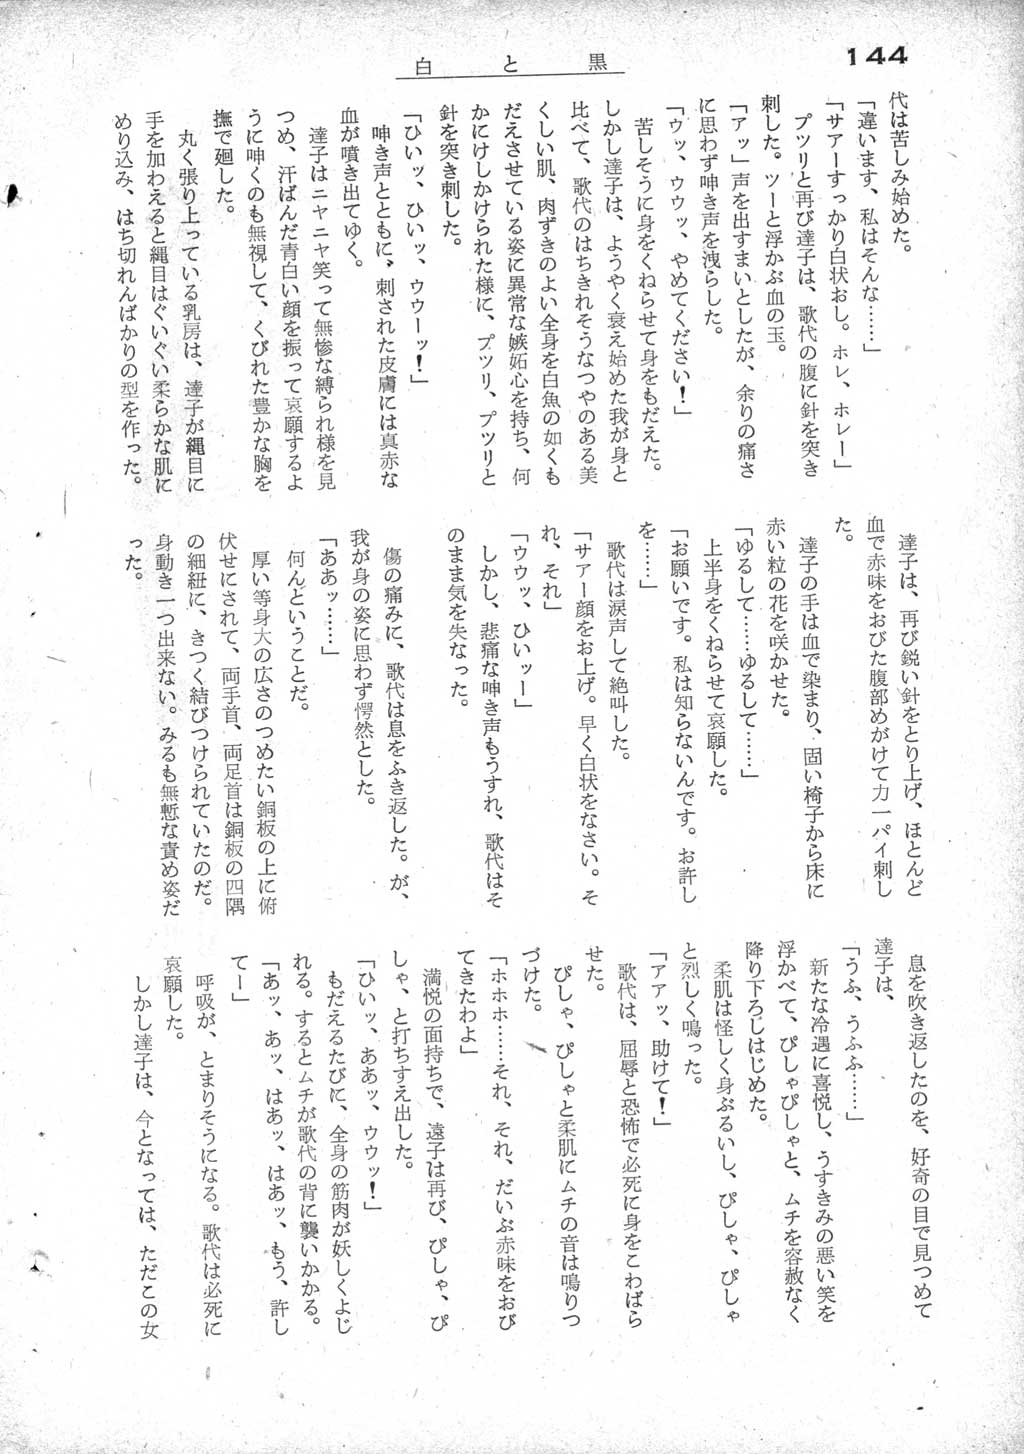 144
白と黒
代は苦しみ始めた。
「違います、私はそんな……」
「サアーすっかり白状おし。ホレ、ホレー」
プツリと再び達子は、歌代の腹に針を突き
刺した。ツーと浮かぶ血の玉。
「アッ」声を出すまいとしたが、余りの痛さ
に思わず呻き声を洩らした。
「ウッ、ウウッ、やめてください！」
苦しそうに身をくねらせて身をもだえた。
しかし達子は、ようやく衰え始めた我が身と
比べて、歌代のはちきれそうなつやのある美
くしい肌、肉ずきのよい全身を白魚の如くも
だえさせている姿に異常な嫉妬心を持ち、何
かにけしかけられた様に、プツリ、プツリと
針を突き刺した。
「ひいッ、ひいッ、ウウーッ！」
呻き声とともに、刺された皮膚には真赤な
血が噴き出てゆく。
達子はニヤニヤ笑って無惨な縛られ様を見
つめ、汗ばんだ青白い顔を振って哀願するよ
うに呻くのも無視して、くびれた豊かな胸を
撫で廻した。
丸く張り上っている乳房は、達子が縄目に
手を加わえると縄目はぐいぐい柔らかな肌に
めり込み、はち切れんばかりの型を作った。
達子は、再び鋭い針をとり上げ、ほとんど
血で赤味をおびた腹部めがけて力一パイ刺し
た。
達子の手は血で染まり、固い椅子から床に
赤い粒の花を咲かせた。
「ゆるして……ゆるして……」
上半身をくねらせて哀願した。
「お願いです。私は知らないんです。お許し
を……」
歌代は涙声して絶叫した。
「サアー顔をお上げ。早く白状をなさい。そ
れ、それ」
「ウウッ、ひいッー」
しかし、悲痛な呻き声もうすれ、歌代はそ
のまま気を失なった。
傷の痛みに、歌代は息をふき返した。が、
我が身の姿に思わず愕然とした。
「ああッ……」
何んということだ。
厚い等身大の広さのつめたい銅板の上に俯
伏せにされて、両手首、両足首は銅板の四隅
の細紐に、きつく結びつけられていたのだ。
身動き一つ出来ない。みるも無慙な責め姿だ
った。
息を吹き返したのを、好奇の目で見つめて
達子は、
「うふ、うふふ……」
新たな冷遇に喜悦し、うすきみの悪い笑を
浮かべて、ぴしゃぴしゃと、ムチを容赦なく
降り下ろしはじめた。
柔肌は怪しく身ぶるいし、ぴしゃ、ぴしゃ
と烈しく鳴った。
「アアッ、助けて！」
歌代は、屈辱と恐怖で必死に身をこわばら
せた。
ぴしゃ、ぴしゃと柔肌にムチの音は鳴りつ
づけた。
「ホホホ……それ、それ、だいぶ赤味をおび
てきたわよ」
満悦の面持ちで、遠子は再び、ぴしゃ、ぴ
しゃ、と打ちすえ出した。
「ひいッ、ああッ、ウウッ！」
もだえるたびに、全身の筋肉が妖しくよじ
れる。するとムチが歌代の背に襲いかかる。
「あッ、あッ、はあッ、はあッ、もう、許し
てー」
呼吸が、とまりそうになる。歌代は必死に
哀願した。
しかし達子は、今となっては、ただこの女